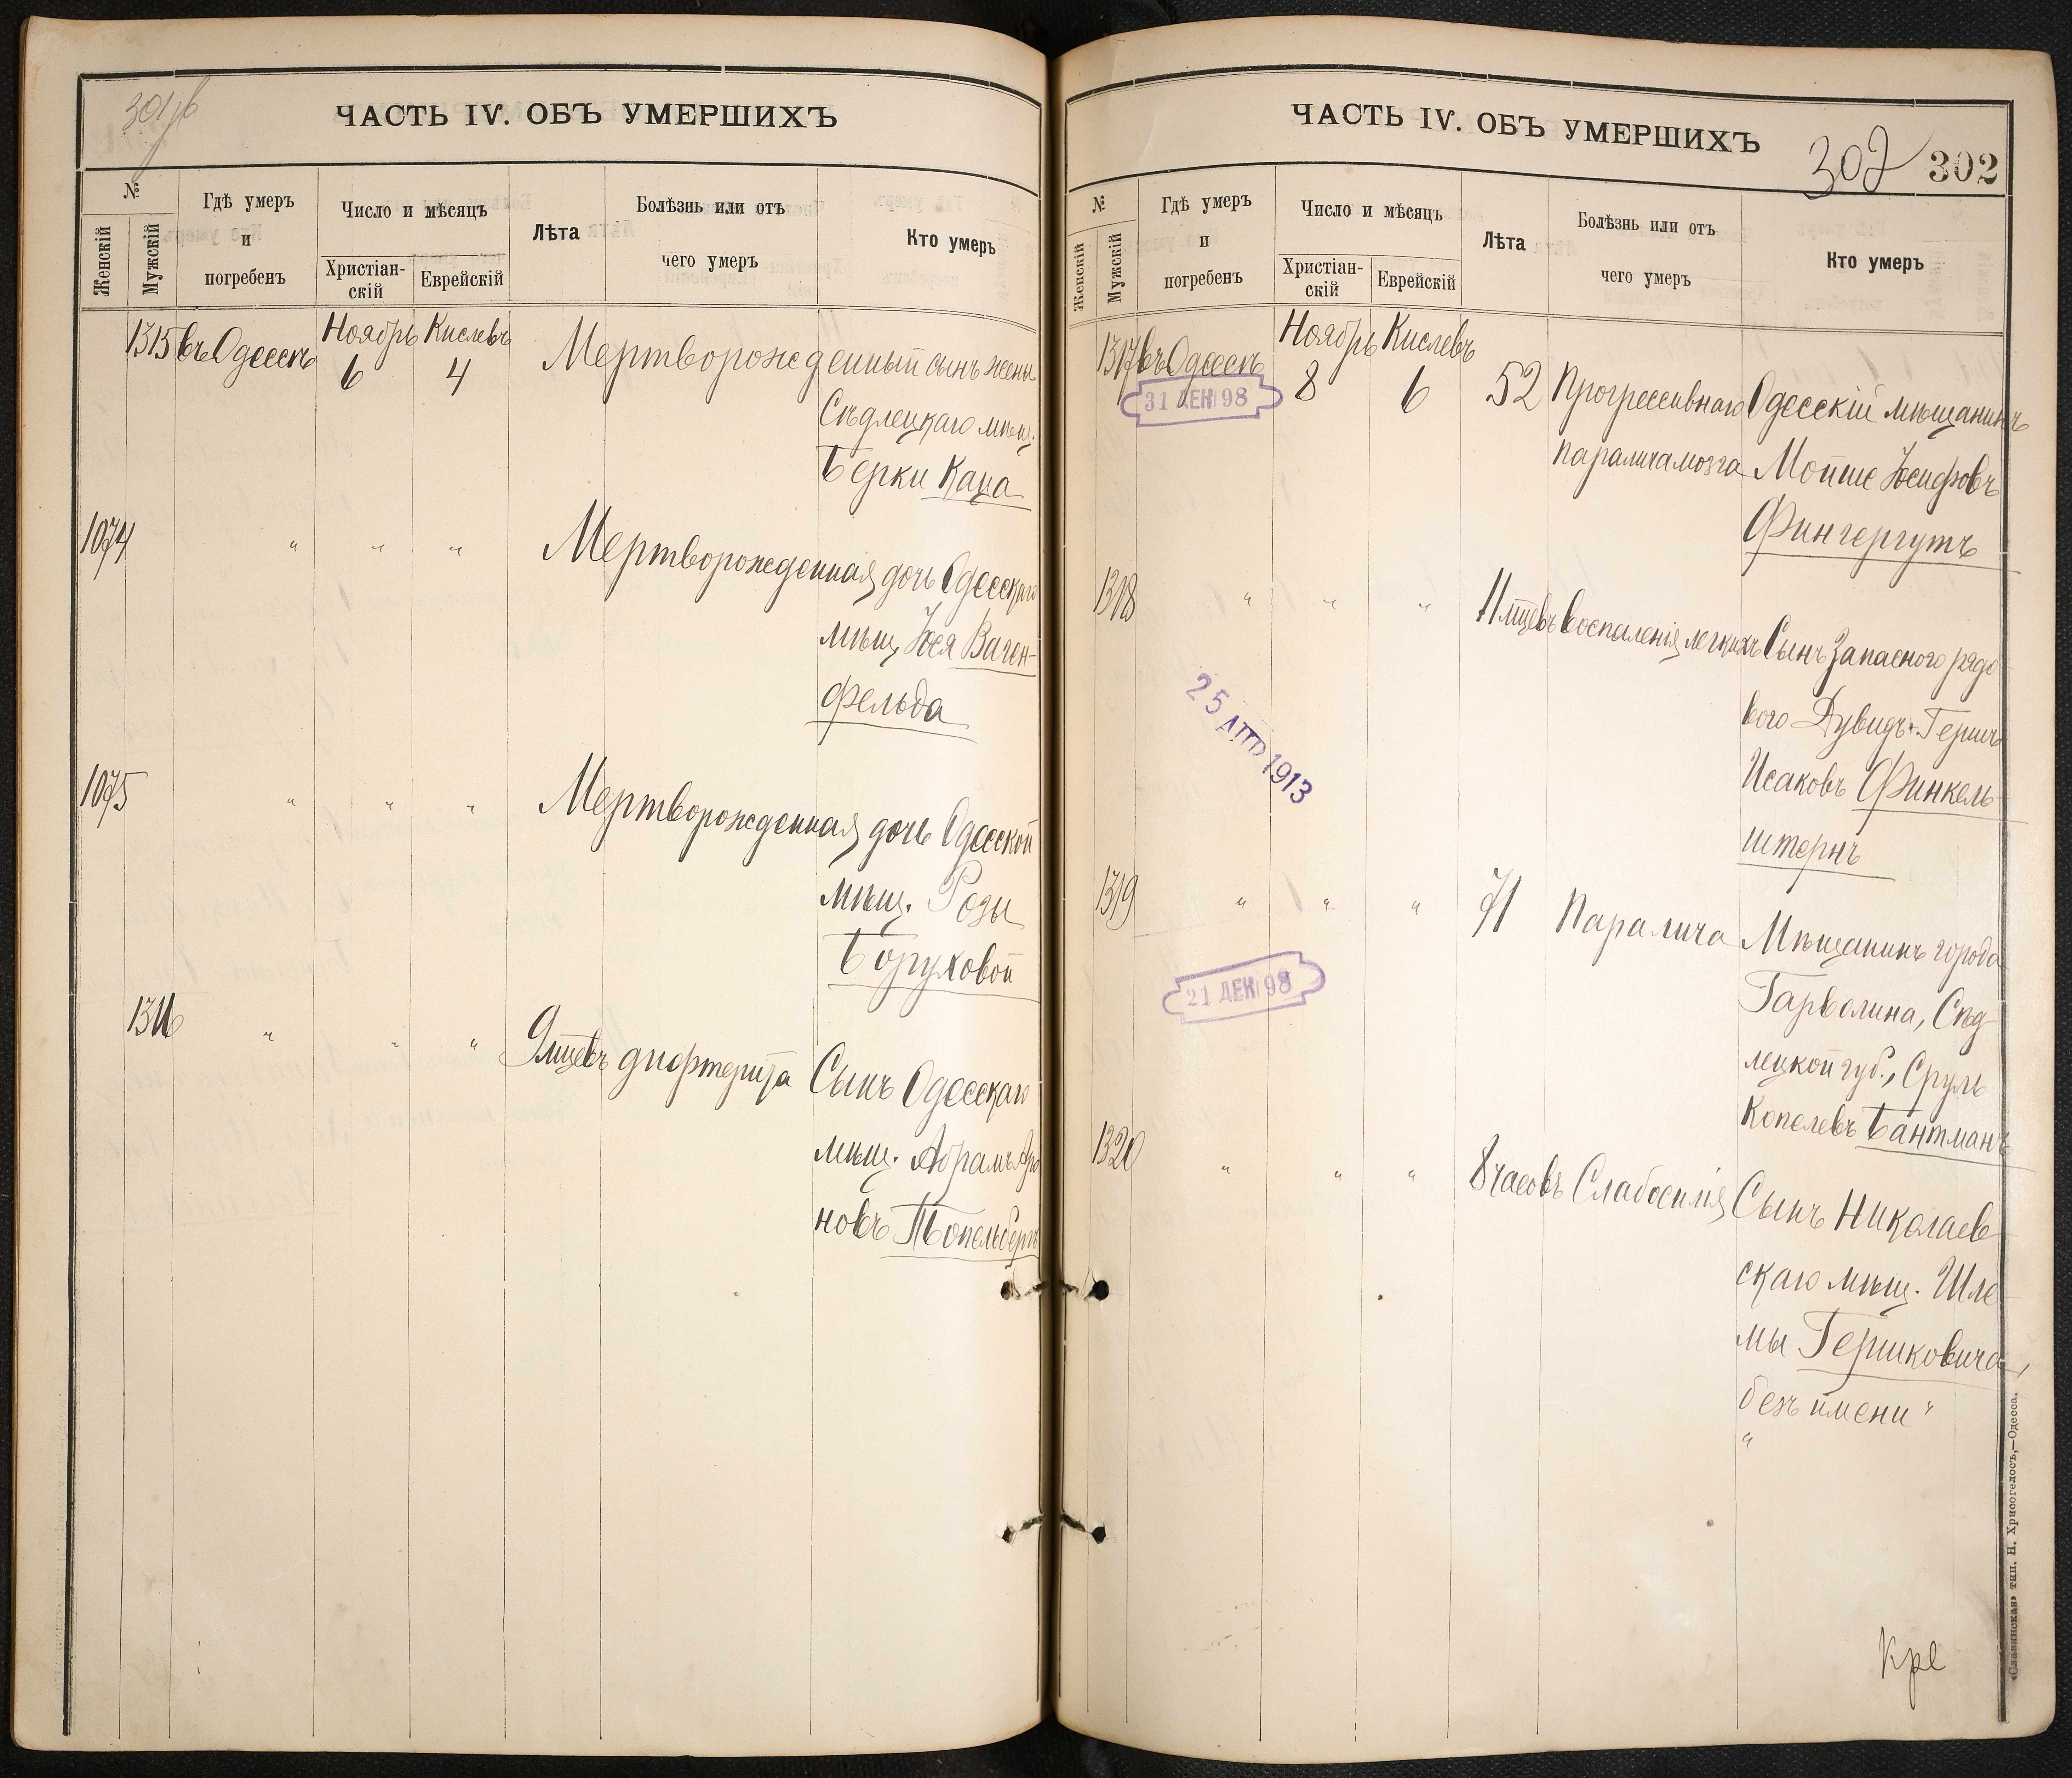 301 об
ЧАСТЬ IV. ОБЪ УМЕРШИХЪ
№
Женскій
Мужскій
Гдѣ умеръ
и
погребенъ
Число и мѣсяцъ
Христіан-
скій
Еврейскій
Лѣта
Болѣзнь или отъ
чего умеръ
Кто умеръ
1315 въ Одессѣ Ноябрь 6 Кислевъ 4 Мертворожденный сынъ жены
Сѣдлецкаго мѣщ.
Берки Каца
1074 " " " Мертворожденная дочь Одесскаго
мѣщ. Іося Ваген-
фельда
1075 " " " Мертворожденная дочь Одесской
мѣщ. Розы
Боруховой
1316 " " " 9 мцевъ дифтерита Сынъ Одесскаго
мѣщ. Абрамъ Аро
новъ
ЧАСТЬ IV. ОБЪ УМЕРШИХЪ
302
302
№
Женскій
Мужскій
Гдѣ умеръ
и
погребенъ
Число и мѣсяцъ
Христіан-
скій
Еврейскій
Лѣта
Болѣзнь или отъ
чего умеръ
Кто умеръ
1317 въ Одессѣ Ноябрь 8 Кислевъ 6 52 Прогрессивнаго Одесскій мѣщанинъ
31 ДЕК 98
паралича мозга Мойше Іосифовъ
Фингергутъ
1318 " " " 11 мцевъ Воспаленія легкихъ Сынъ Запасного рядо
вого Дувидъ-Гершъ
25 АПР 1913
Исаковъ Финкель
штернъ
1319 " " " 71 Паралича Мѣщанинъ города
21 ДЕК 98
Гарволина, Сѣд
лецкой губ., Сруль
Копелевъ Бантманъ
1320 " " " 8 часовъ Слабосилія Сынъ Николаев
скаго мѣщ. Шле
мы Гершковича,
"безъ имени"
«Славянская» тип. Н. Хрисогелосъ,—Одесса.